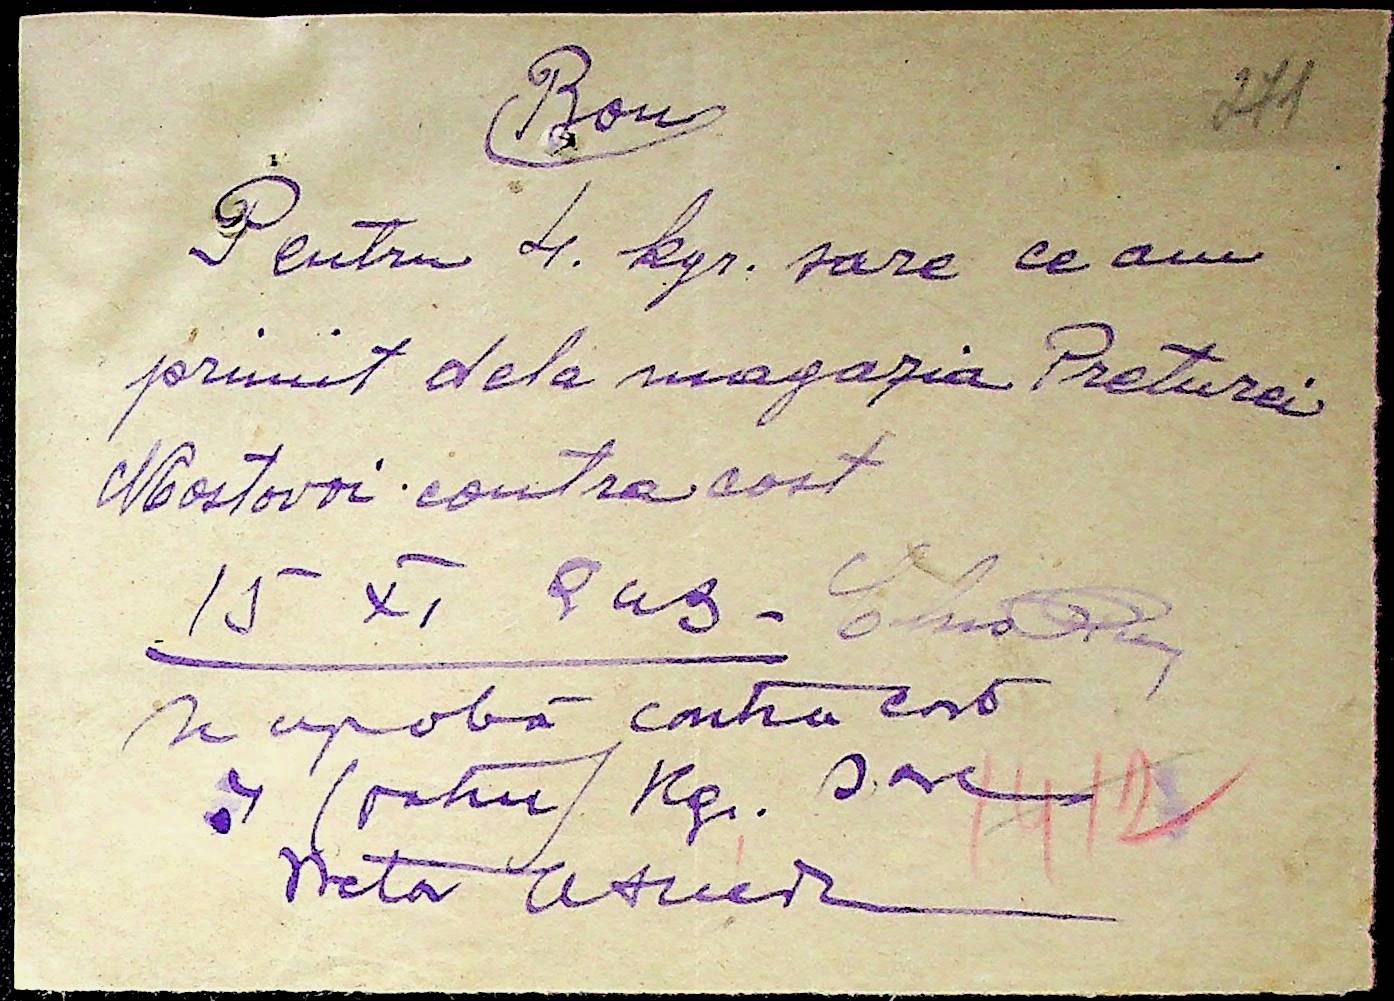 Bon
271
Pentru 4. kgr. sare ce am
primit dela magazia Preturei
Mostovoi contra cost
15 XI 943.
Se aprobă contra cost
4 (patru) Kgr. Sare
1412
Pretor